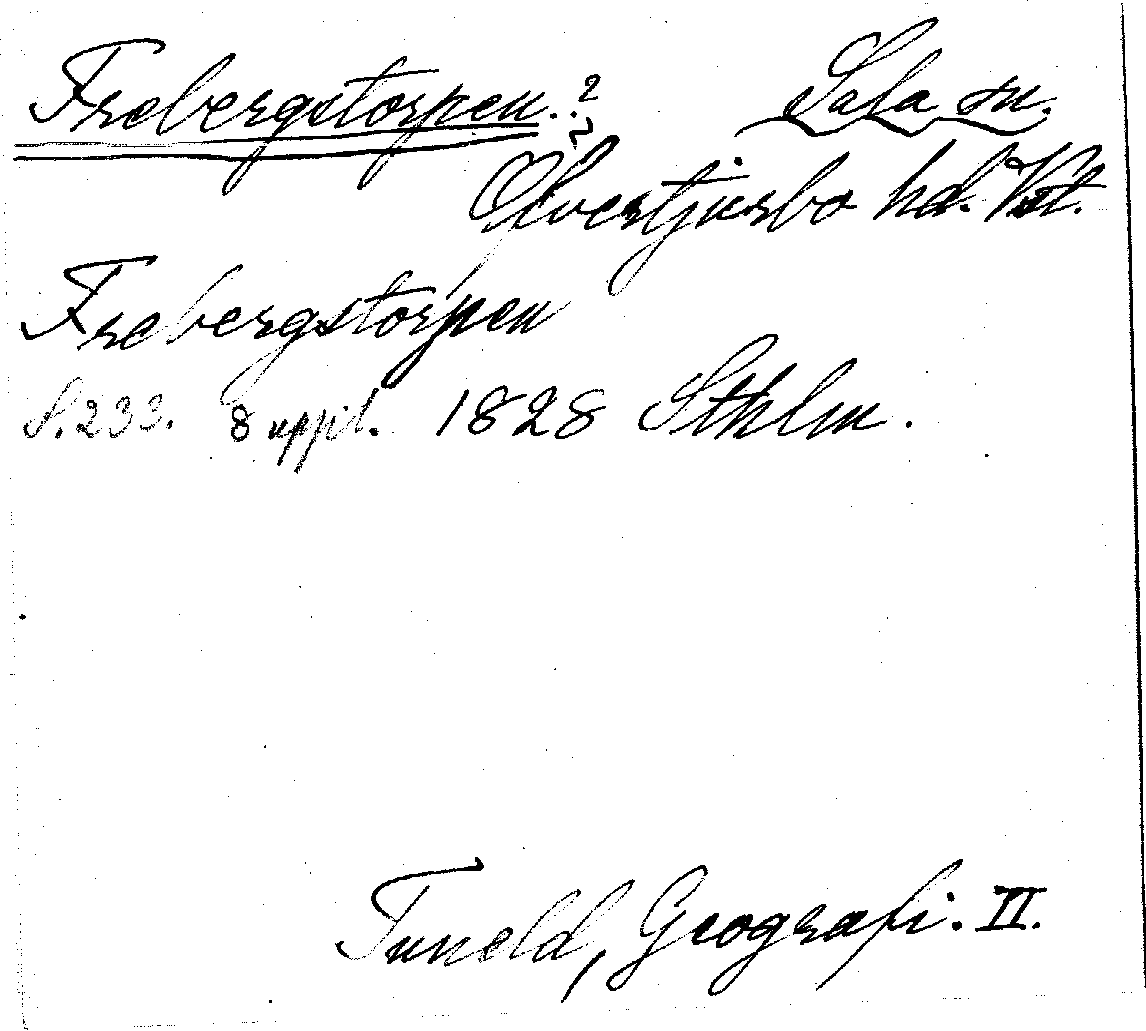 Frebergstorpen.. ? Sala sn.
Övertjurbo hd. Vst.
Frebergstorpen
S. 233. 8 uppl. 1828 Sthlm.
Tuneld, Geografi. II.